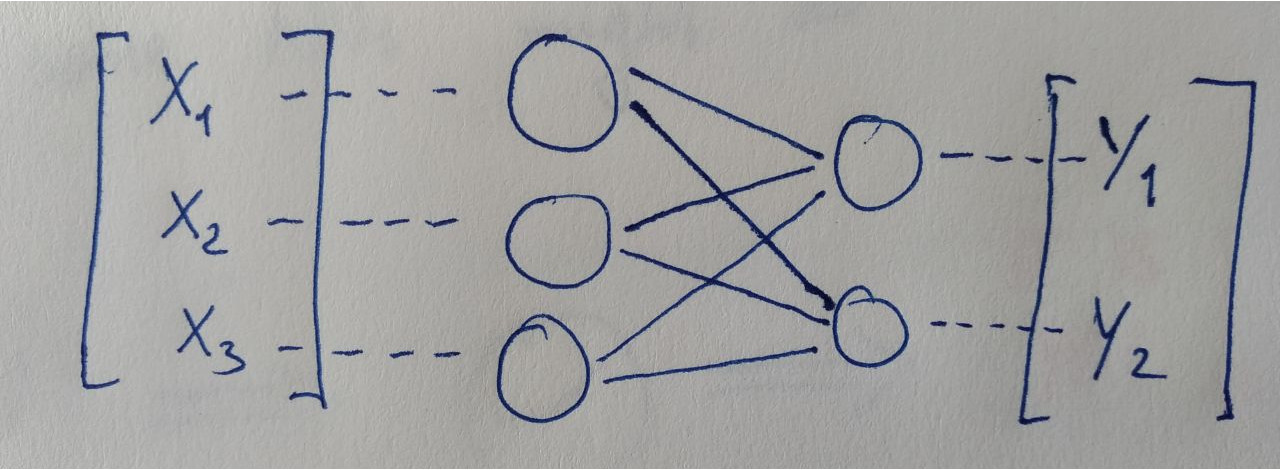 X₁
X₂
X₃
Y₁
Y₂